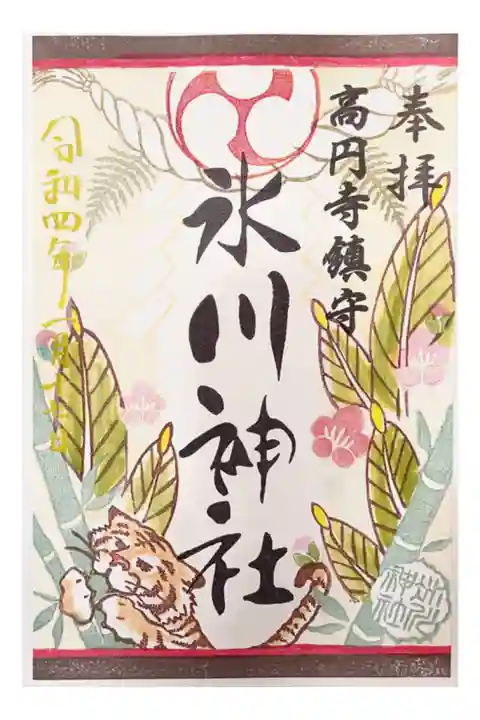 奉拝
高円寺鎮守
氷川神社
令和四年
氷川
神社